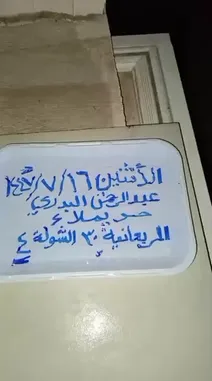 الأثنين ١٦/٧/١٤٤٧هـ
عبدالرحمن البدري
حريملاء
المريعانية ٣٠ الشولة ٤